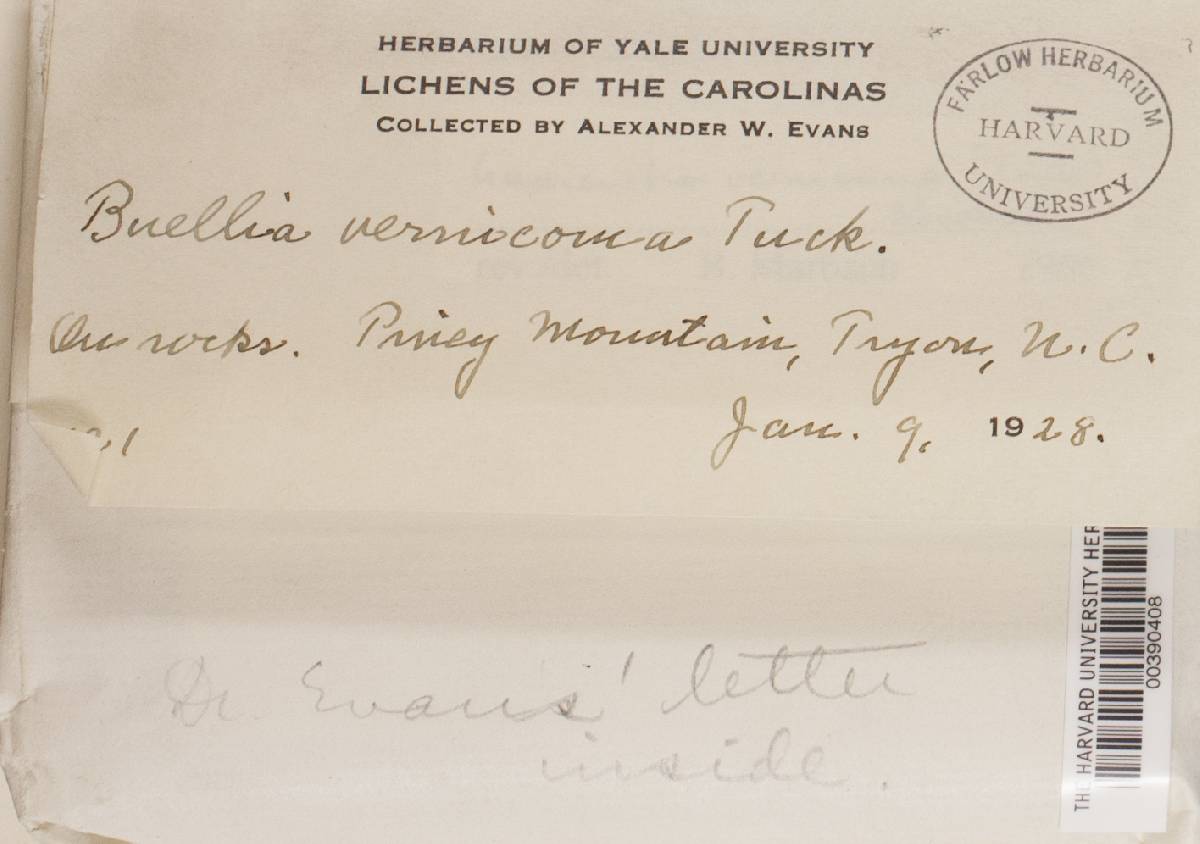 HERBARIUM OF YALE UNIVERSITY
LICHENS OF THE CAROLINAS
COLLECTED BY ALEXANDER W. EVANS
FARLOW HERBARIUM
HARVARD
UNIVERSITY
Buellia vernicoma Tuck.
On rocks. Piney Mountain, Tryon, N.C.
Jan. 9, 1928.
Dr Evans' letter
inside.
THE HARVARD UNIVERSITY HER
00390408